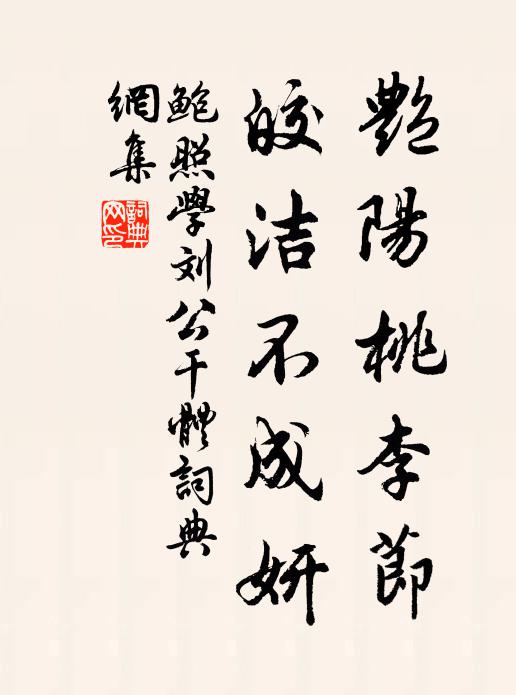 艷陽桃李節
皎洁不成妍
鮑照學刘公干體詞典
網集
詞典網印